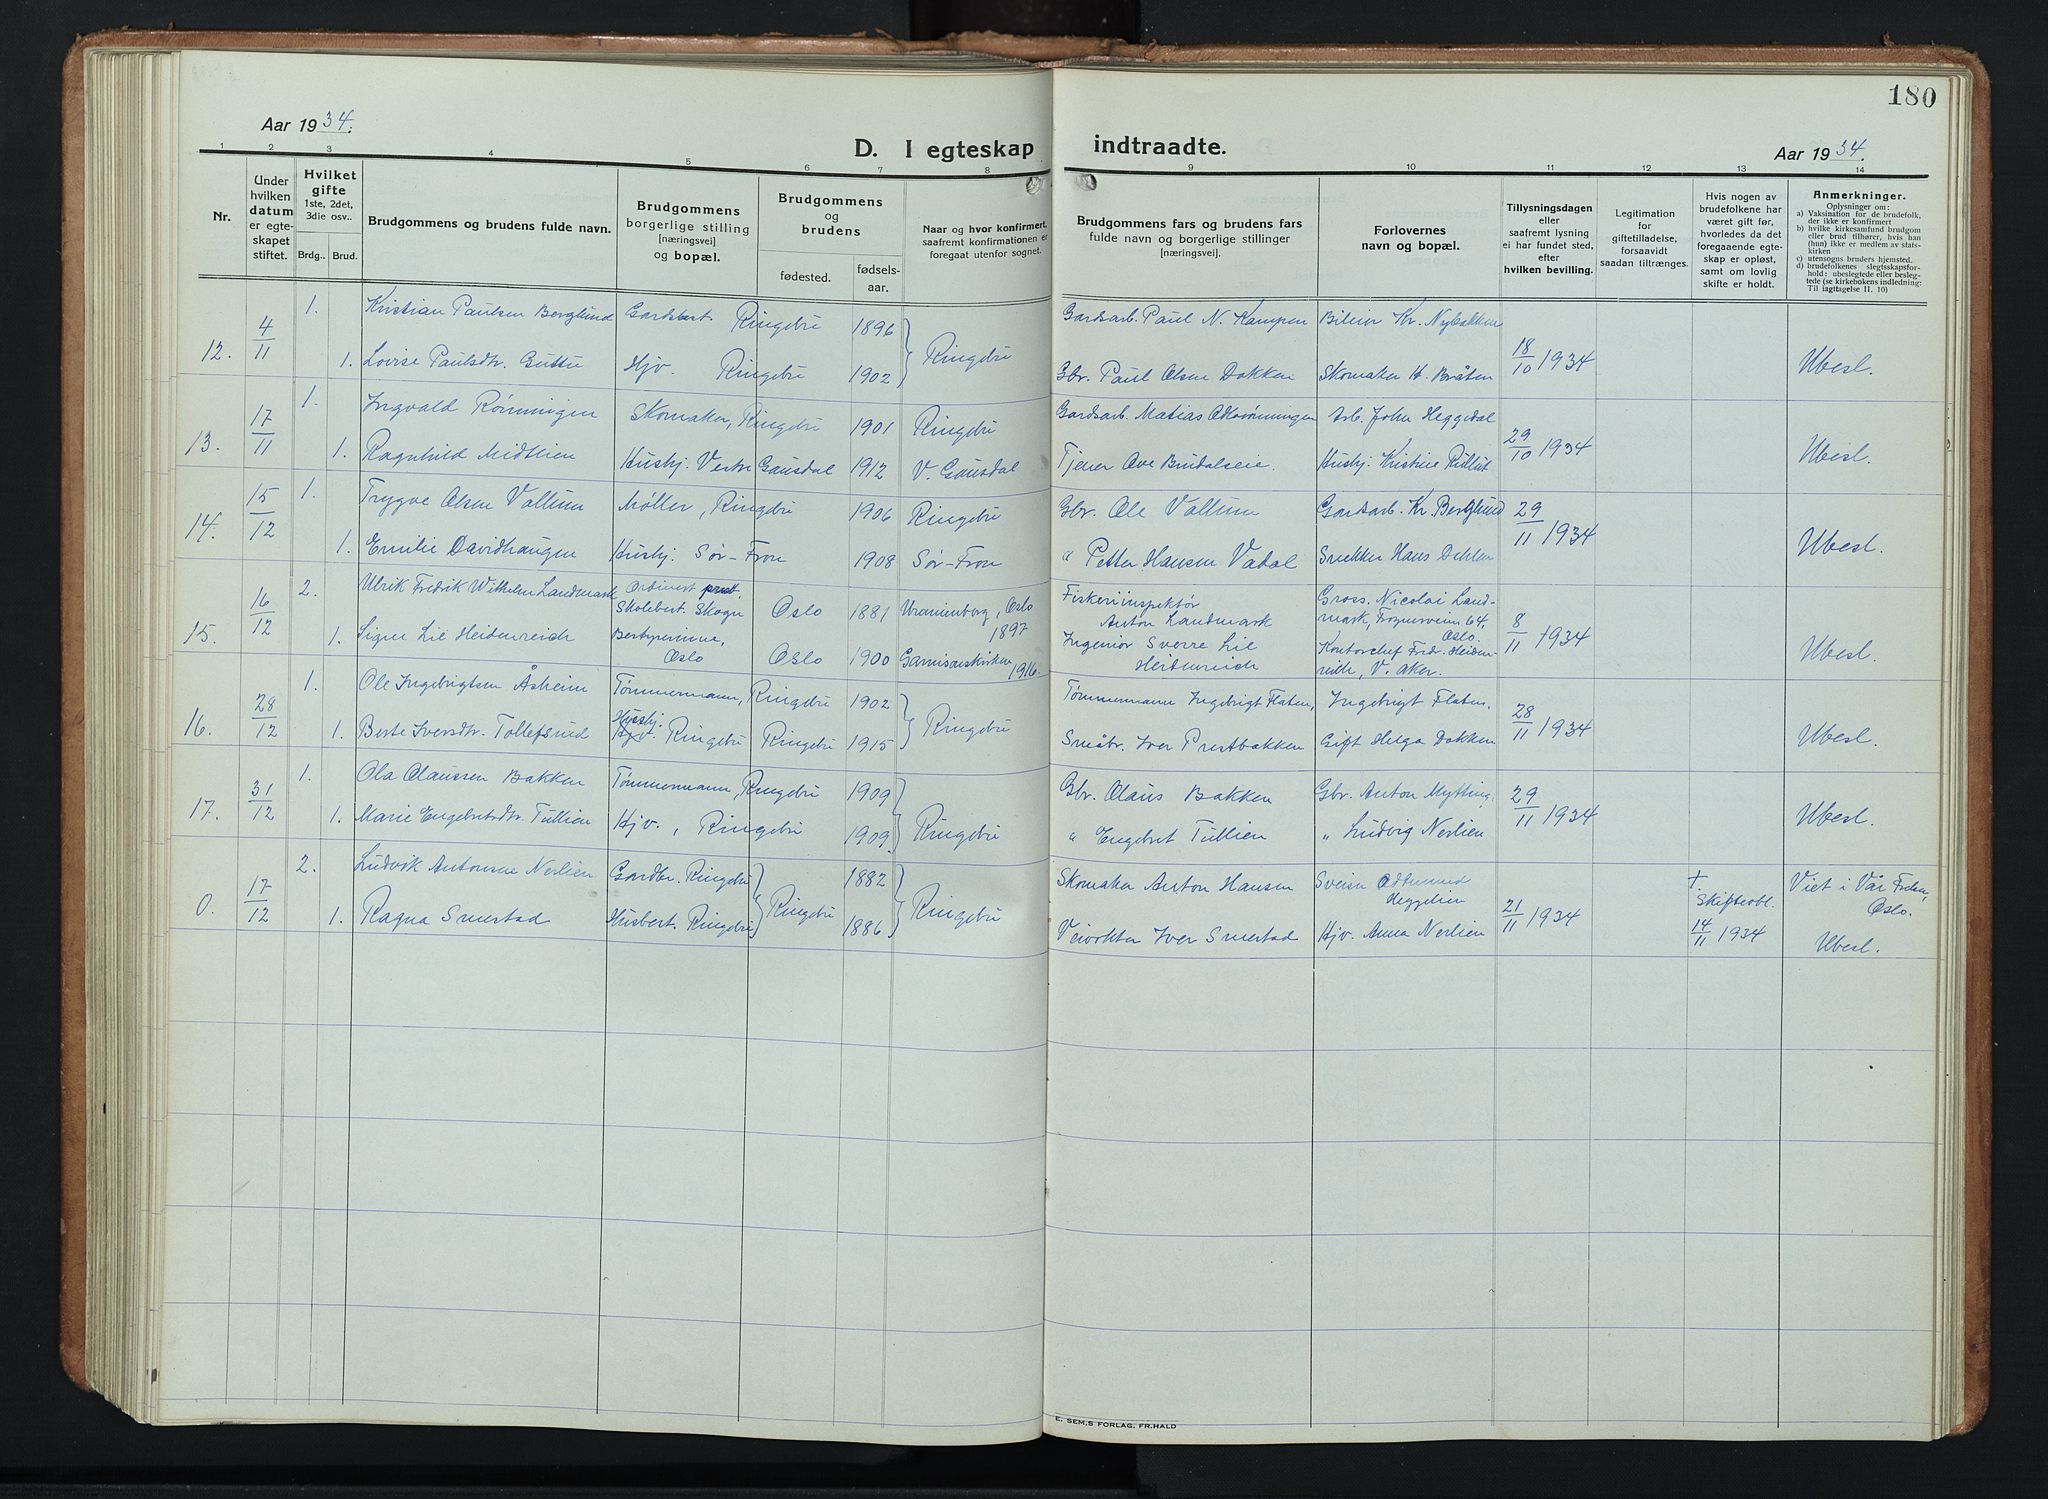 180
Aar 1934.
D. I egteskap indtraadte.
Aar 1934.
1 2 3 4 5 6 7 8 9 10 11 12 13 14
Nr.
Under hvilken datum er egteskapet stiftet.
Hvilket gifte 1ste, 2det, 3die osv..
Brdg.. Brud.
Brudgommens og brudens fulde navn.
Brudgommens borgerlige stilling [næringsvei] og bopæl.
Brudgommens og brudens
fødested.
fødsels-aar.
Naar og hvor konfirmert, saafremt konfirmationen er foregaat utenfor sognet.
Brudgommens fars og brudens fars fulde navn og borgerlige stillinger [næringsvei].
Forlovernes navn og bopæl.
Tillysningsdagen eller saafremt lysning ei har fundet sted, efter hvilken bevilling.
Legitimation for giftetilladelse, forsaavidt saadan tiltrænges.
Hvis nogen av brudefolkene har været gift før, hvorledes da det foregaaende egteskap er opløst, samt om lovlig skifte er holdt.
Anmerkninger.
Oplysninger om:
a) Vaksination for de brudefolk, der ikke er konfirmert
b) hvilke kirkesamfund brudgom eller brud tilhører, hvis han (hun) ikke er medlem av statskirken
c) utensogns bruders hjemsted.
d) brudefolkenes slegtsskapsforhold: ubeslegtede eller beslegtede (se kirkebokens indledning: Til iagttagelse II. 10)
12. 4/11 1. Kristian Paulsen Berglund Gardsbest. Ringebu 1896 Ringebu Gardsarb. Paul N. Kampen Bileier Kr. Nybakken 18/10 1934 Ubesl.
1. Lovise Paulsdtr. Guttu Hjv. Ringebu 1902 Gbr. Paul Olsen Dokken Skomaker H. Bråten
13. 17/11 1. Ingvald Rønningen Skomaker, Ringebu 1901 Ringebu Gardsarb. Matias Rønningen Arb. John Heggedal 29/10 1934 Ubesl.
1. Ragnhild Midtlien Hushj. Vestre Gausdal 1912 V. Gausdal Tjener Ove Brudalseie. Hushj. Kristine
14. 15/12 1. Trygve Olsen Vallum Møller, Ringebu 1906 Ringebu Gbr. Ole Vallum Gardsarb. Kr. Berglund 29/11 1934 Ubesl.
1. Emilie Davidhaugen Hushj. Sør-Fron 1908 Sør-Fron " Petter Hansen Vadal Snekker Hans Dehlen
15. 16/12 2. Ulrik Fredrik Wilhelm Landmark Ordinert prest, Skolebest. Skogn Oslo 1881 Uranienborg, Oslo 1897 Fiskeriinspektør Anton Landmark Gross. Nicolai Landmark, Frognerveien 64, Oslo. 8/11 1934 Ubesl.
1. Signe Lie Heidenreich Bestyrerinne, Oslo Oslo 1900 Garnisonskirken 1916. Ingeniør Sverre Lie Heidenreich Kontorchef Fred. Heidenreich, V. Aker.
16. 28/12 1. Ole Ingebrigtsen Åsheim Tømmermann, Ringebu 1902 Ringebu Tømmermann Ingebrigt Flaten, Ingebrigt Flaten. 28/11 1934 Ubesl.
1. Berte Iversdtr. Tollefsrud Hushj. Hjv. Ringebu Ringebu 1915 Småbr. Iver Prestbakken Gift Helga Dokken
17. 31/12 1. Ola Olaussen Bakken Tømmermann, Ringebu 1909 Ringebu Gbr. Olaus Bakken Gbr. Anton Mytting, 29/11 1934 Ubesl.
1. Marie Engebretsdtr. Tullien Hjv., Ringebu 1909. " Engebret Tullien " Ludvig Nerlien
0. 17/12 2. Ludvik Antonsen Nerlien Gardbr. Ringebu Ringebu 1882 Ringebu Skomaker Anton Hansen Heggelien 21/11 1934 † Skifteobl. 14/11 1934 Viet i Vår Frelser, Oslo. Ubesl.
1. Ragna Smestad Husbest. Ringebu 1886 Veivokter Iver Smestad Hjv. Anna Nerlien
E. SEM,S FORLAG, FR.HALD